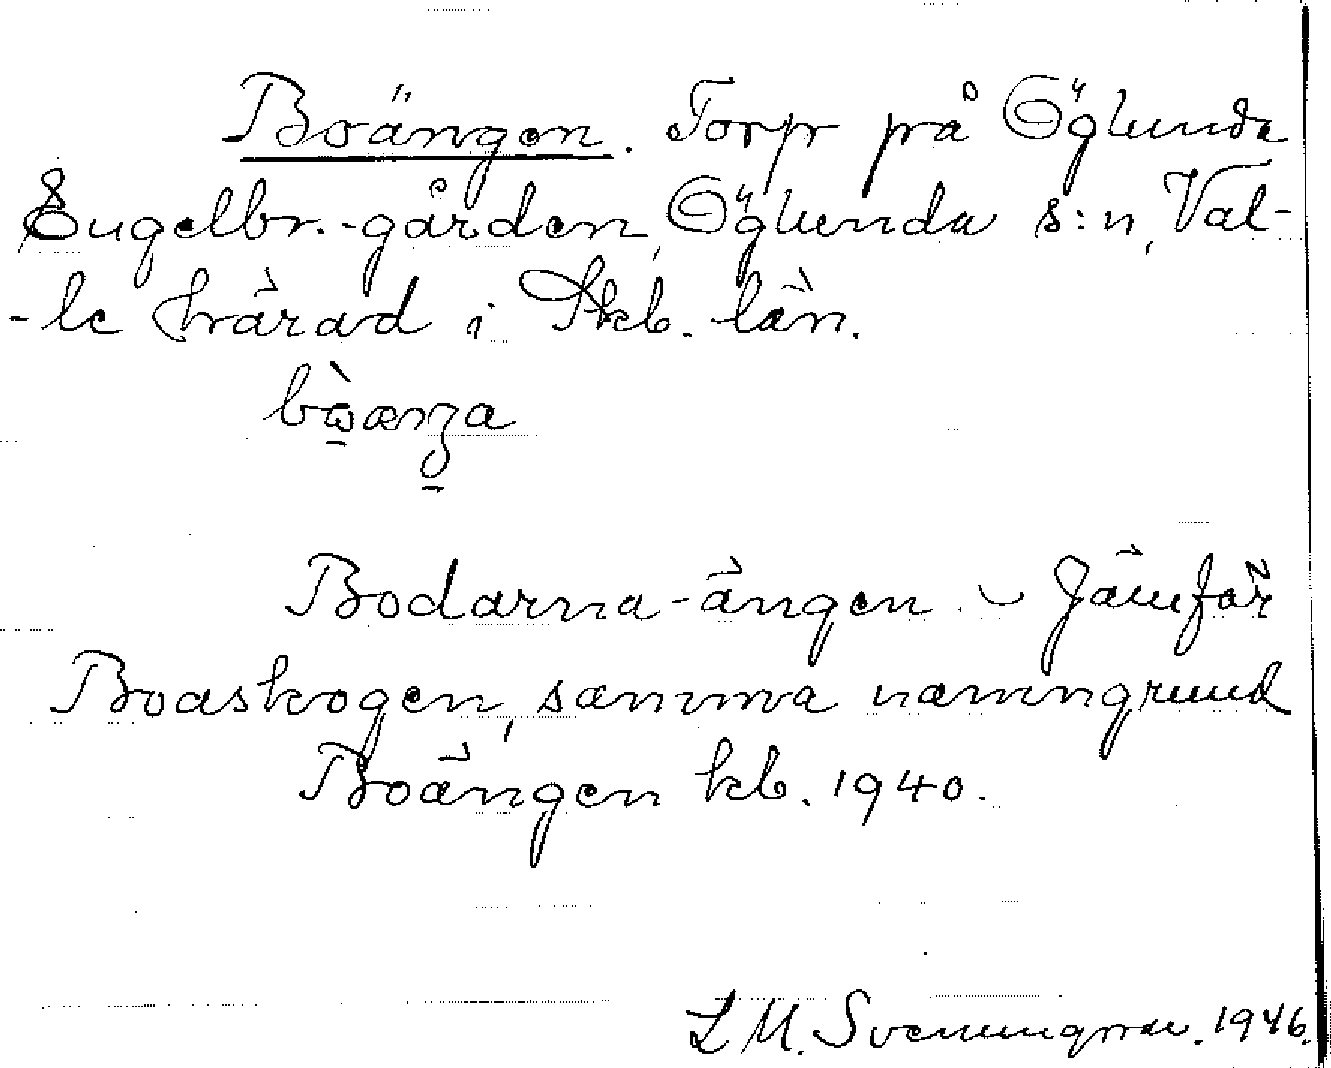 Boängen. Torp på Öglunda
Engelbr.-gården, Öglunda s:n, Val-
-le härad i Skb. län.
Bodarna-ängen. Jämför
Boaskogen, samma namngrund
Boängen kb. 1940.
L M. Svenungsson. 1946.